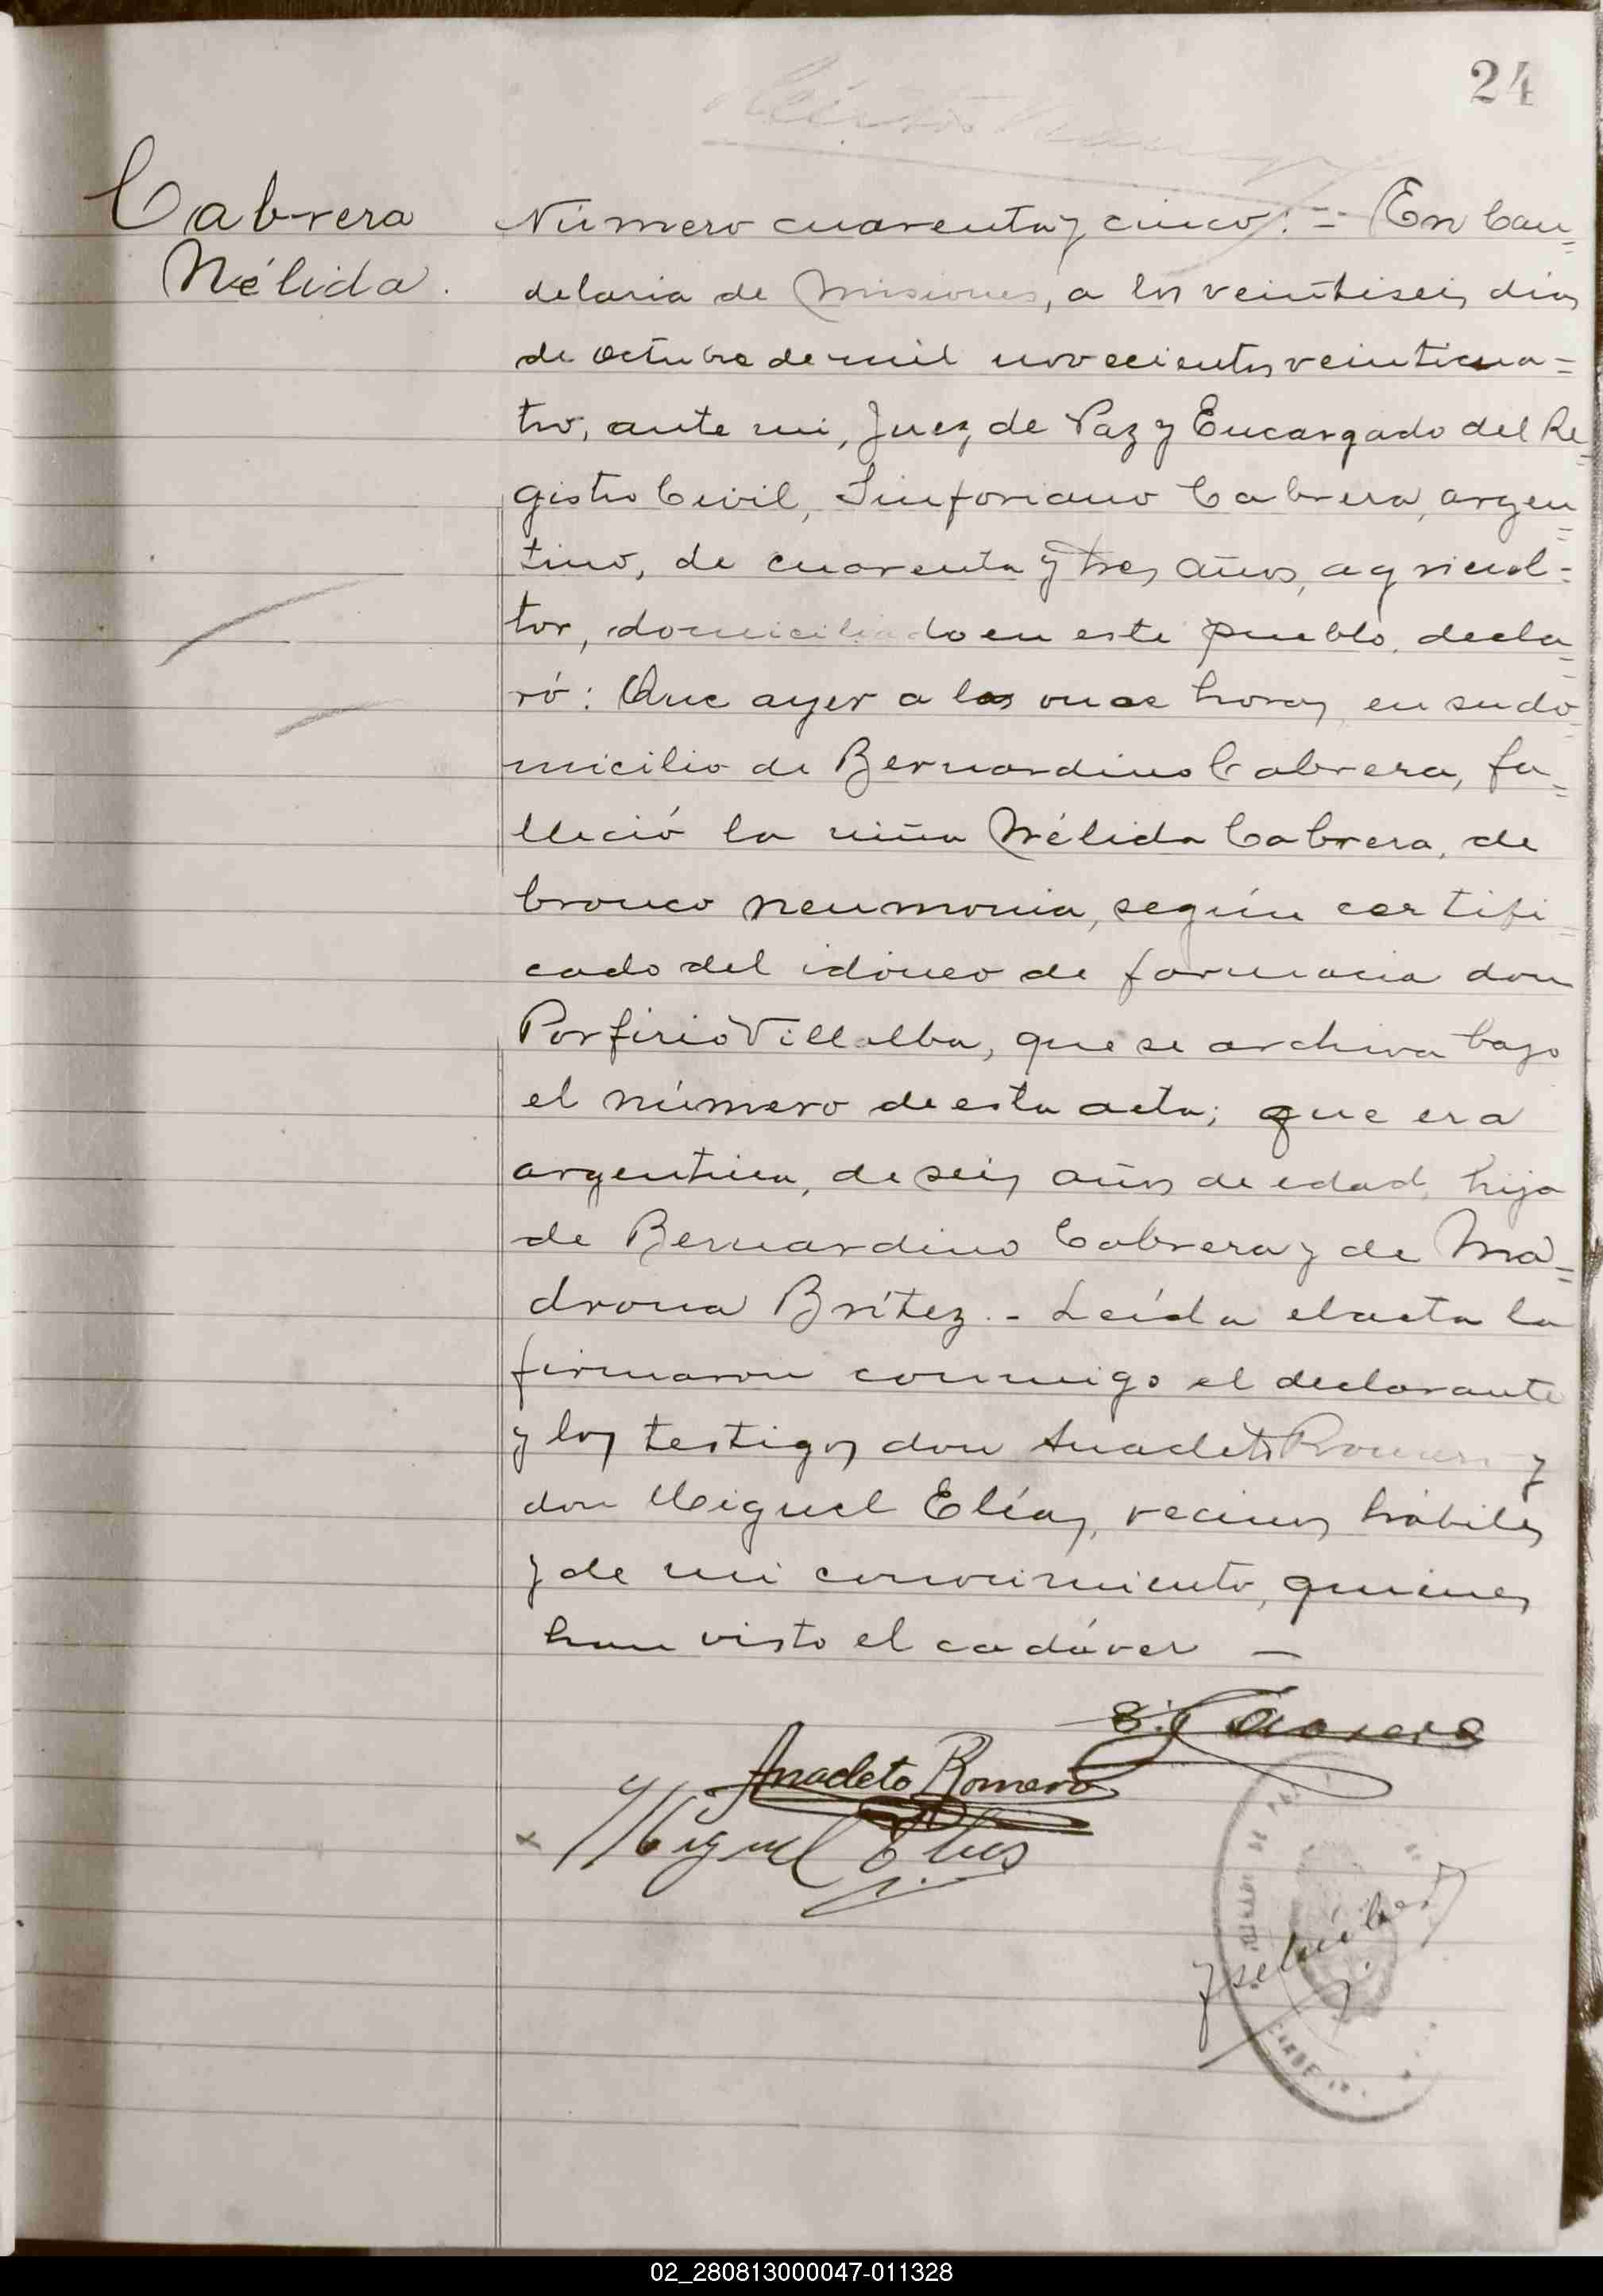 24
Cabrera
Nélida.
Número cuarenta y cinco: = En Can=
delaria de Misiones, a los veintiseis dias
de Octubre de mil novecientos veinticua=
tro, ante mi, Juez de Paz y Encargado del Re=
gistro Civil, Sinforiano Cabrera, argen=
tino, de cuarenta y tres años, agricul=
tor, domiciliado en este pueblo, decla=
ró: Que ayer a las once horas, en su do=
micilio de Bernardino Cabrera, fa=
lleció la niña Nélida Cabrera, de
bronco neumonia, según certifi=
cado del idóneo de farmacia don
Porfirio Villalba, que se archiva bajo
el número de esta acta; que era
argentina, de seis años de edad, hija
de Bernardino Cabrera y de Ma=
drona Brítez. - Leída el acta la
firmaron conmigo el declarante
y los testigos don Anacleto Romero y
don Miguel Elías, vecinos hábiles
y de mi conocimiento, quienes
han visto el cadáver —
S. Cabrera
Anacleto Romero
Miguel Elias
02_280813000047-011328